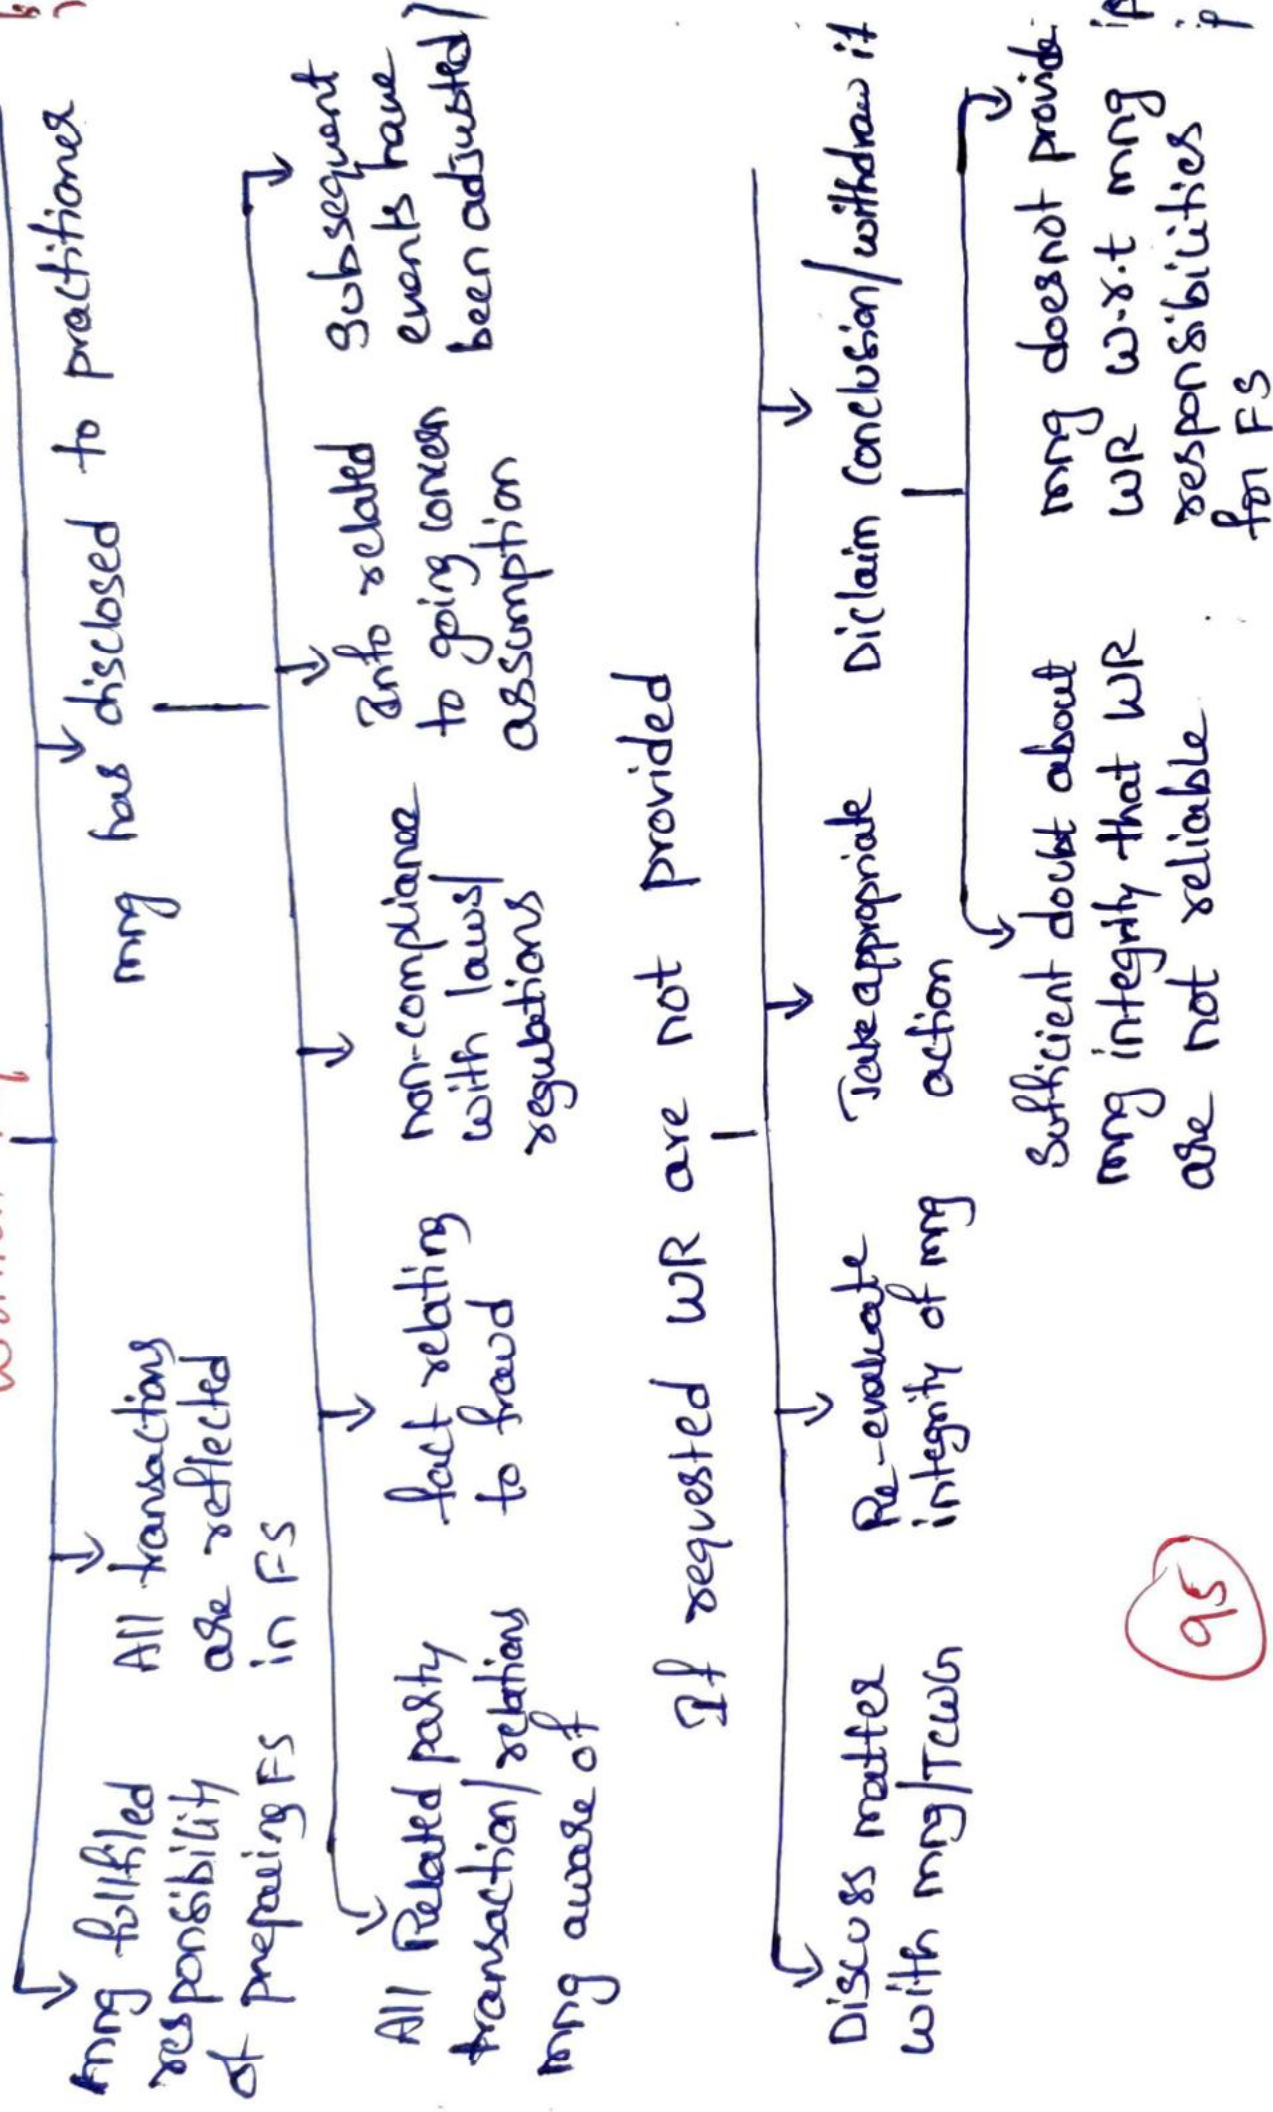 mng fullfiled
responsibility
of prepaeing FS
All transactions
are reflected
in FS
mng has disclosed to practitioner
All Related party
transaction/relations
mng aware of
fact relating
to fraud
non-compliance
with laws/
regulations
Info related
to going concern
assumption
Subsequent
events have
been adjusted/
If requested WR are not provided
Discuss matter
with mng/TCWG
Re-evaluate
integrity of mng
Take appropriate
action
Diclaim Conclusion/withdraw if
Sufficient doubt about
mng integrity that WR
are not reliable
mng doesnot provide
WR w.r.t mng
responsibilities
for FS
95